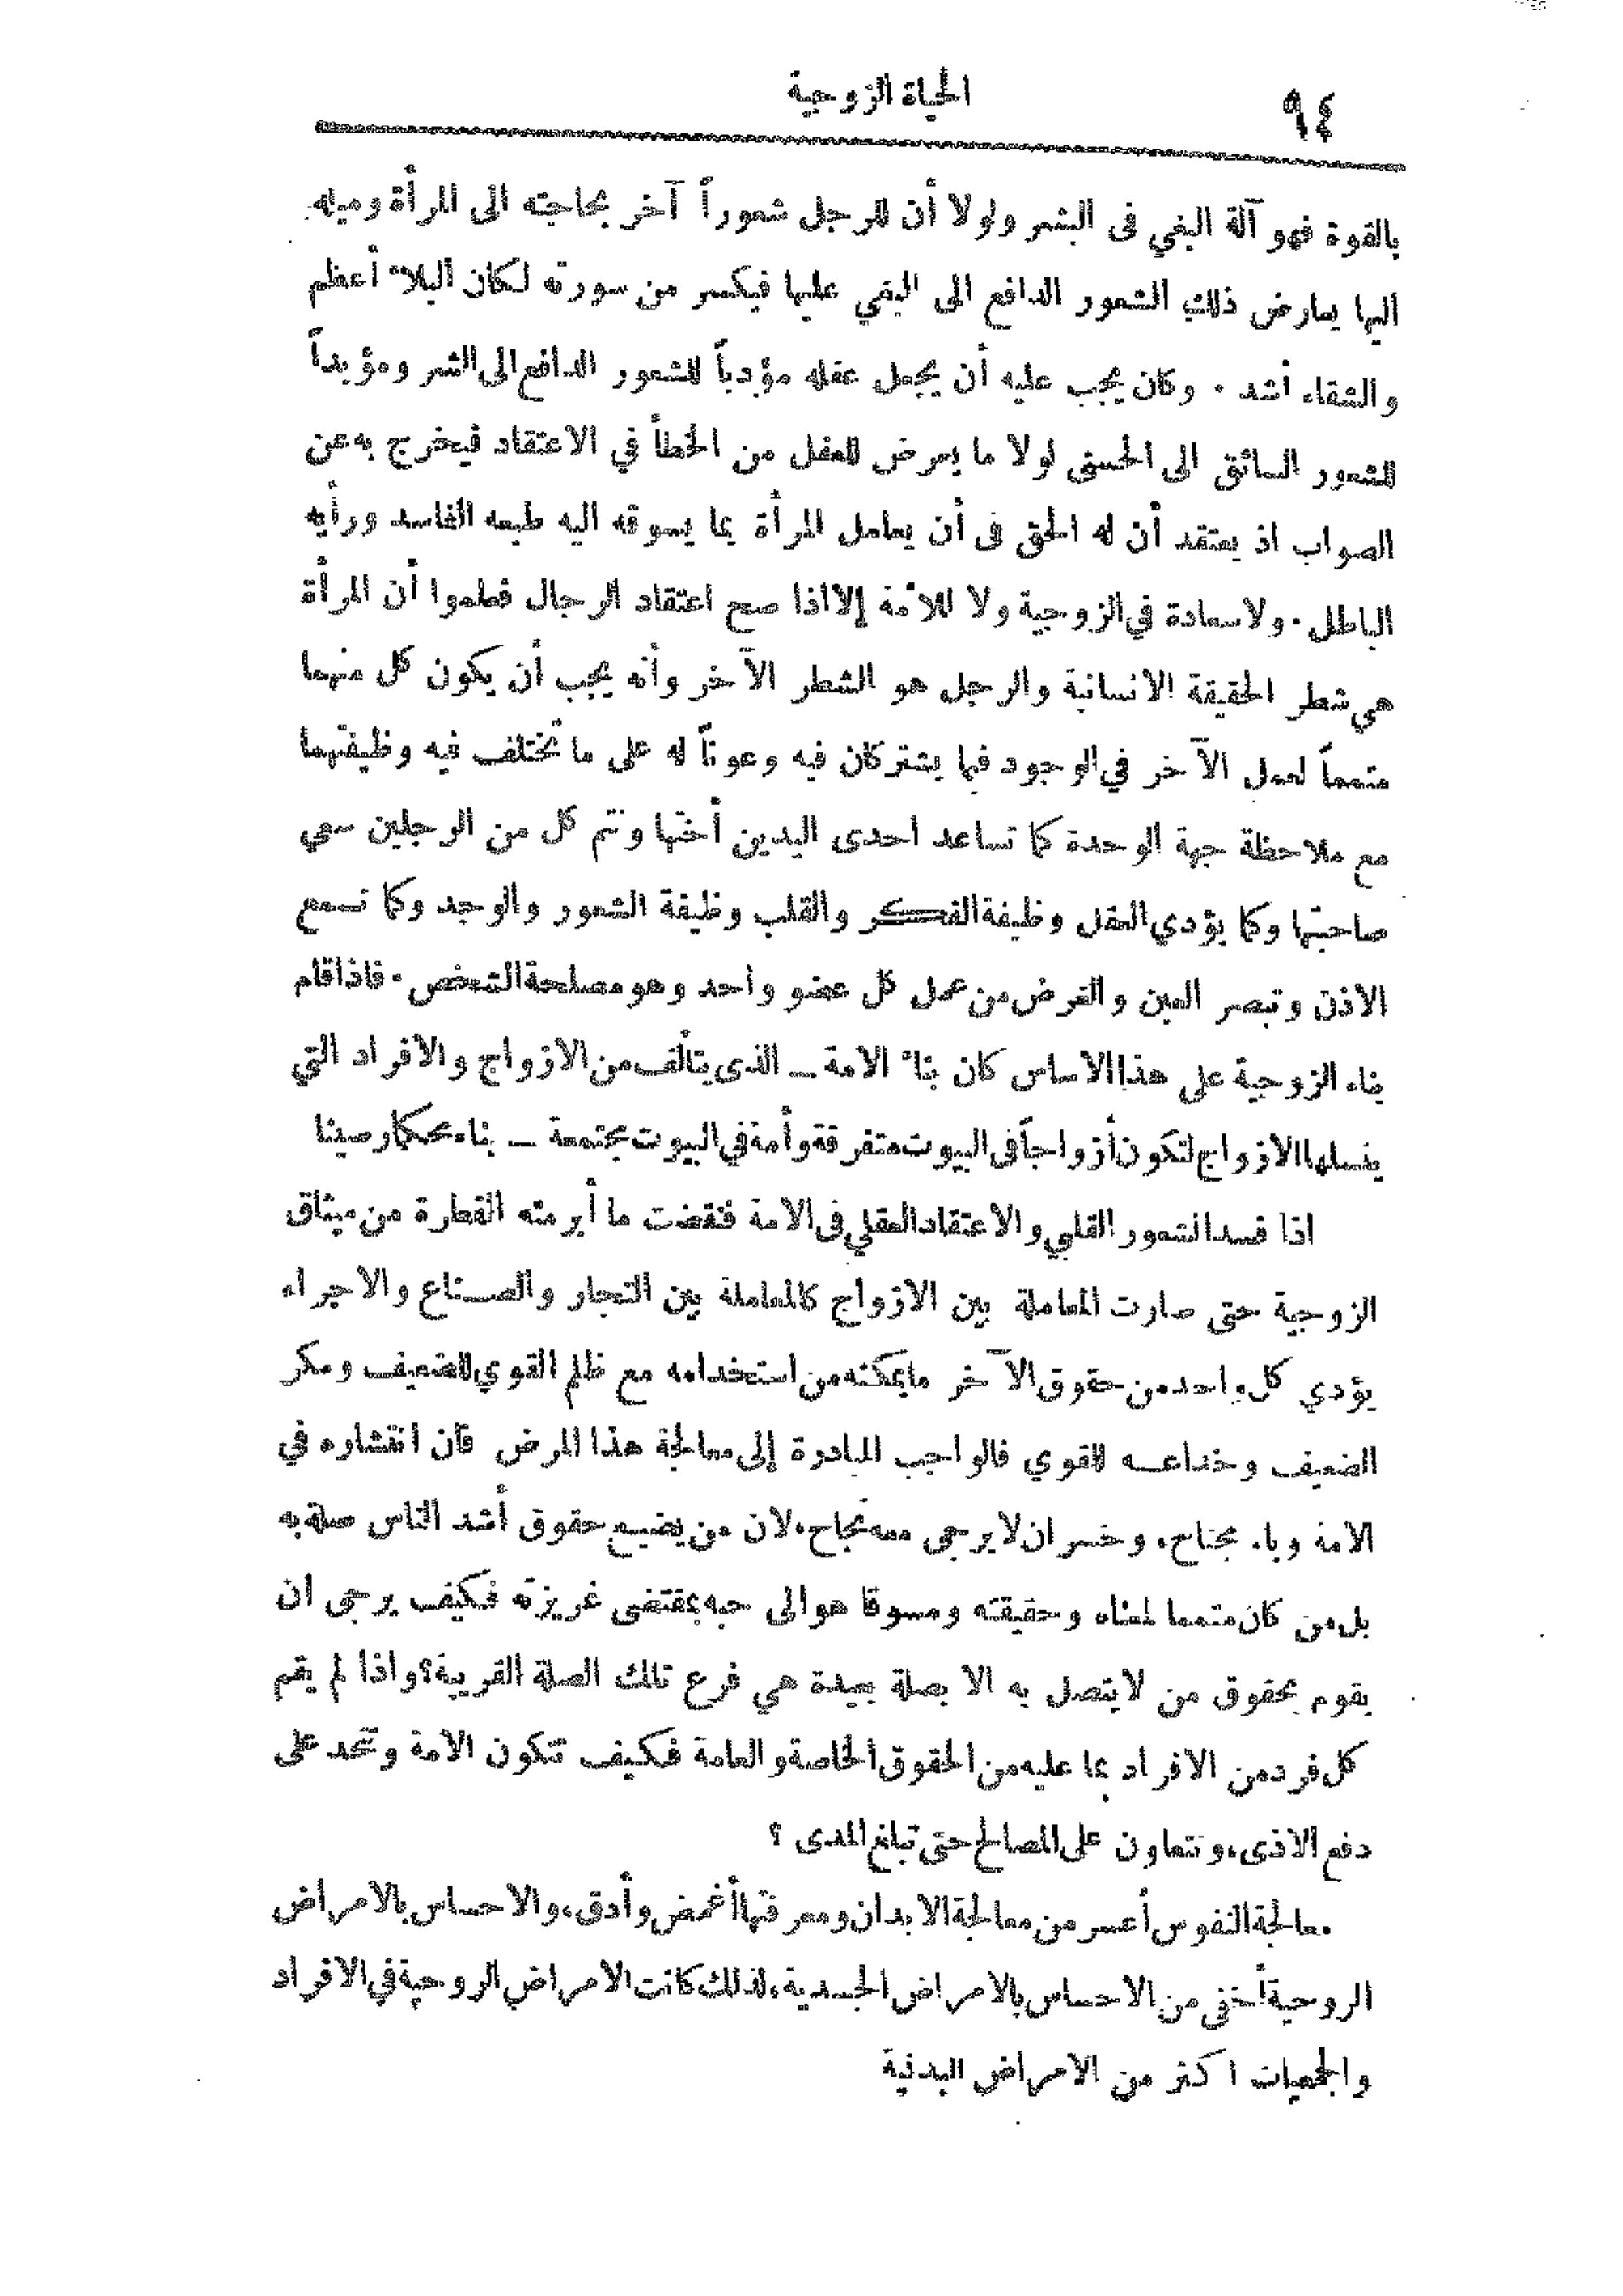 ٩٤
الحياة الزوجية
بالقوة فهو آلة البغي فى البشر ولولا أن للرجل شعوراً آخر بحاجته الى المرأة وميله
اليها يعارض ذلك الشعور الدافع الى البغي عليها فيكسر من سورته لكان البلاء أعظم
والشقاء أشد ٠ وكان يجب عليه أن يجعل عقله مؤدباً للشعور الدافع الى الشر ومؤيداً
للشعور السائق الى الحسنى لولا ما يعرض للعقل من الخطأ في الاعتقاد فيخرج به عن
الصواب اذ يعتقد أن له الحق فى أن يعامل المرأة بما يسوقه اليه طبعه الفاسد ورأيه
الباطل ٠ ولا سعادة في الزوجية ولا للأمة إلا اذا صح اعتقاد الرجال فعلموا أن المرأة
هي شطر الحقيقة الانسانية والرجل هو الشطر الآخر وأنه يجب أن يكون كل منهما
متمماً لعمل الآخر في الوجود فيما يشتركان فيه وعوناً له على ما تختلف فيه وظيفتهما
مع ملاحظة جهة الوحدة كما تساعد احدى اليدين أختها وتتم كل من الرجلين سعي
صاحبتها وكما يؤدي العقل وظيفة الفكر والقلب وظيفة الشعور والوجد وكما تسمع
الاذن وتبصر العين والغرض من عمل كل عضو واحد وهو مصلحة الشخص ٠ فاذا قام
بناء الزوجية على هذا الاساس كان بناء الامة ــ الذى يتألف من الازواج والافراد التي
ينسلها الازواج لتكون أزواجاً فى البيوت متفرقة وأمة في البيوت مجتمعة ــ بناء محكما رصينا
اذا فسد الشعور القلبي والاعتقاد العقلي فى الامة فنقضت ما أبرمته الفطرة من ميثاق
الزوجية حتى صارت المعاملة بين الازواج كالمعاملة بين التجار والصناع والاجراء
يؤدي كل واحد من حقوق الآخر ما يمكنه من استخدامه مع ظلم القوي للضعيف ومكر
الضعيف وخداعه للقوي فالواجب المبادرة إلى معالجة هذا المرض فان انتشاره في
الامة وباء مجتاح، وخسران لا يرجى معه نجاح، لان من يضيع حقوق أشد الناس صلة به
بل من كان متمما لمعناه وحقيقته ومسوقا هو الى حبه بمقتضى غريزته فكيف يرجى ان
يقوم بحقوق من لا يتصل به الا بصلة بعيدة هي فرع تلك الصلة القريبة؟ واذا لم يقم
كل فرد من الافراد بما عليه من الحقوق الخاصة والعامة فكيف تتكون الامة وتتحد على
دفع الاذى، وتتعاون على المصالح حتى تبلغ المدى ؟
معالجة النفوس أعسر من معالجة الابدان ومعرفتها أغمض وأدق، والاحساس بالامراض
الروحية أخفى من الاحساس بالامراض الجسدية، لذلك كانت الامراض الروحية في الافراد
والجمعيات اكثر من الامراض البدنية